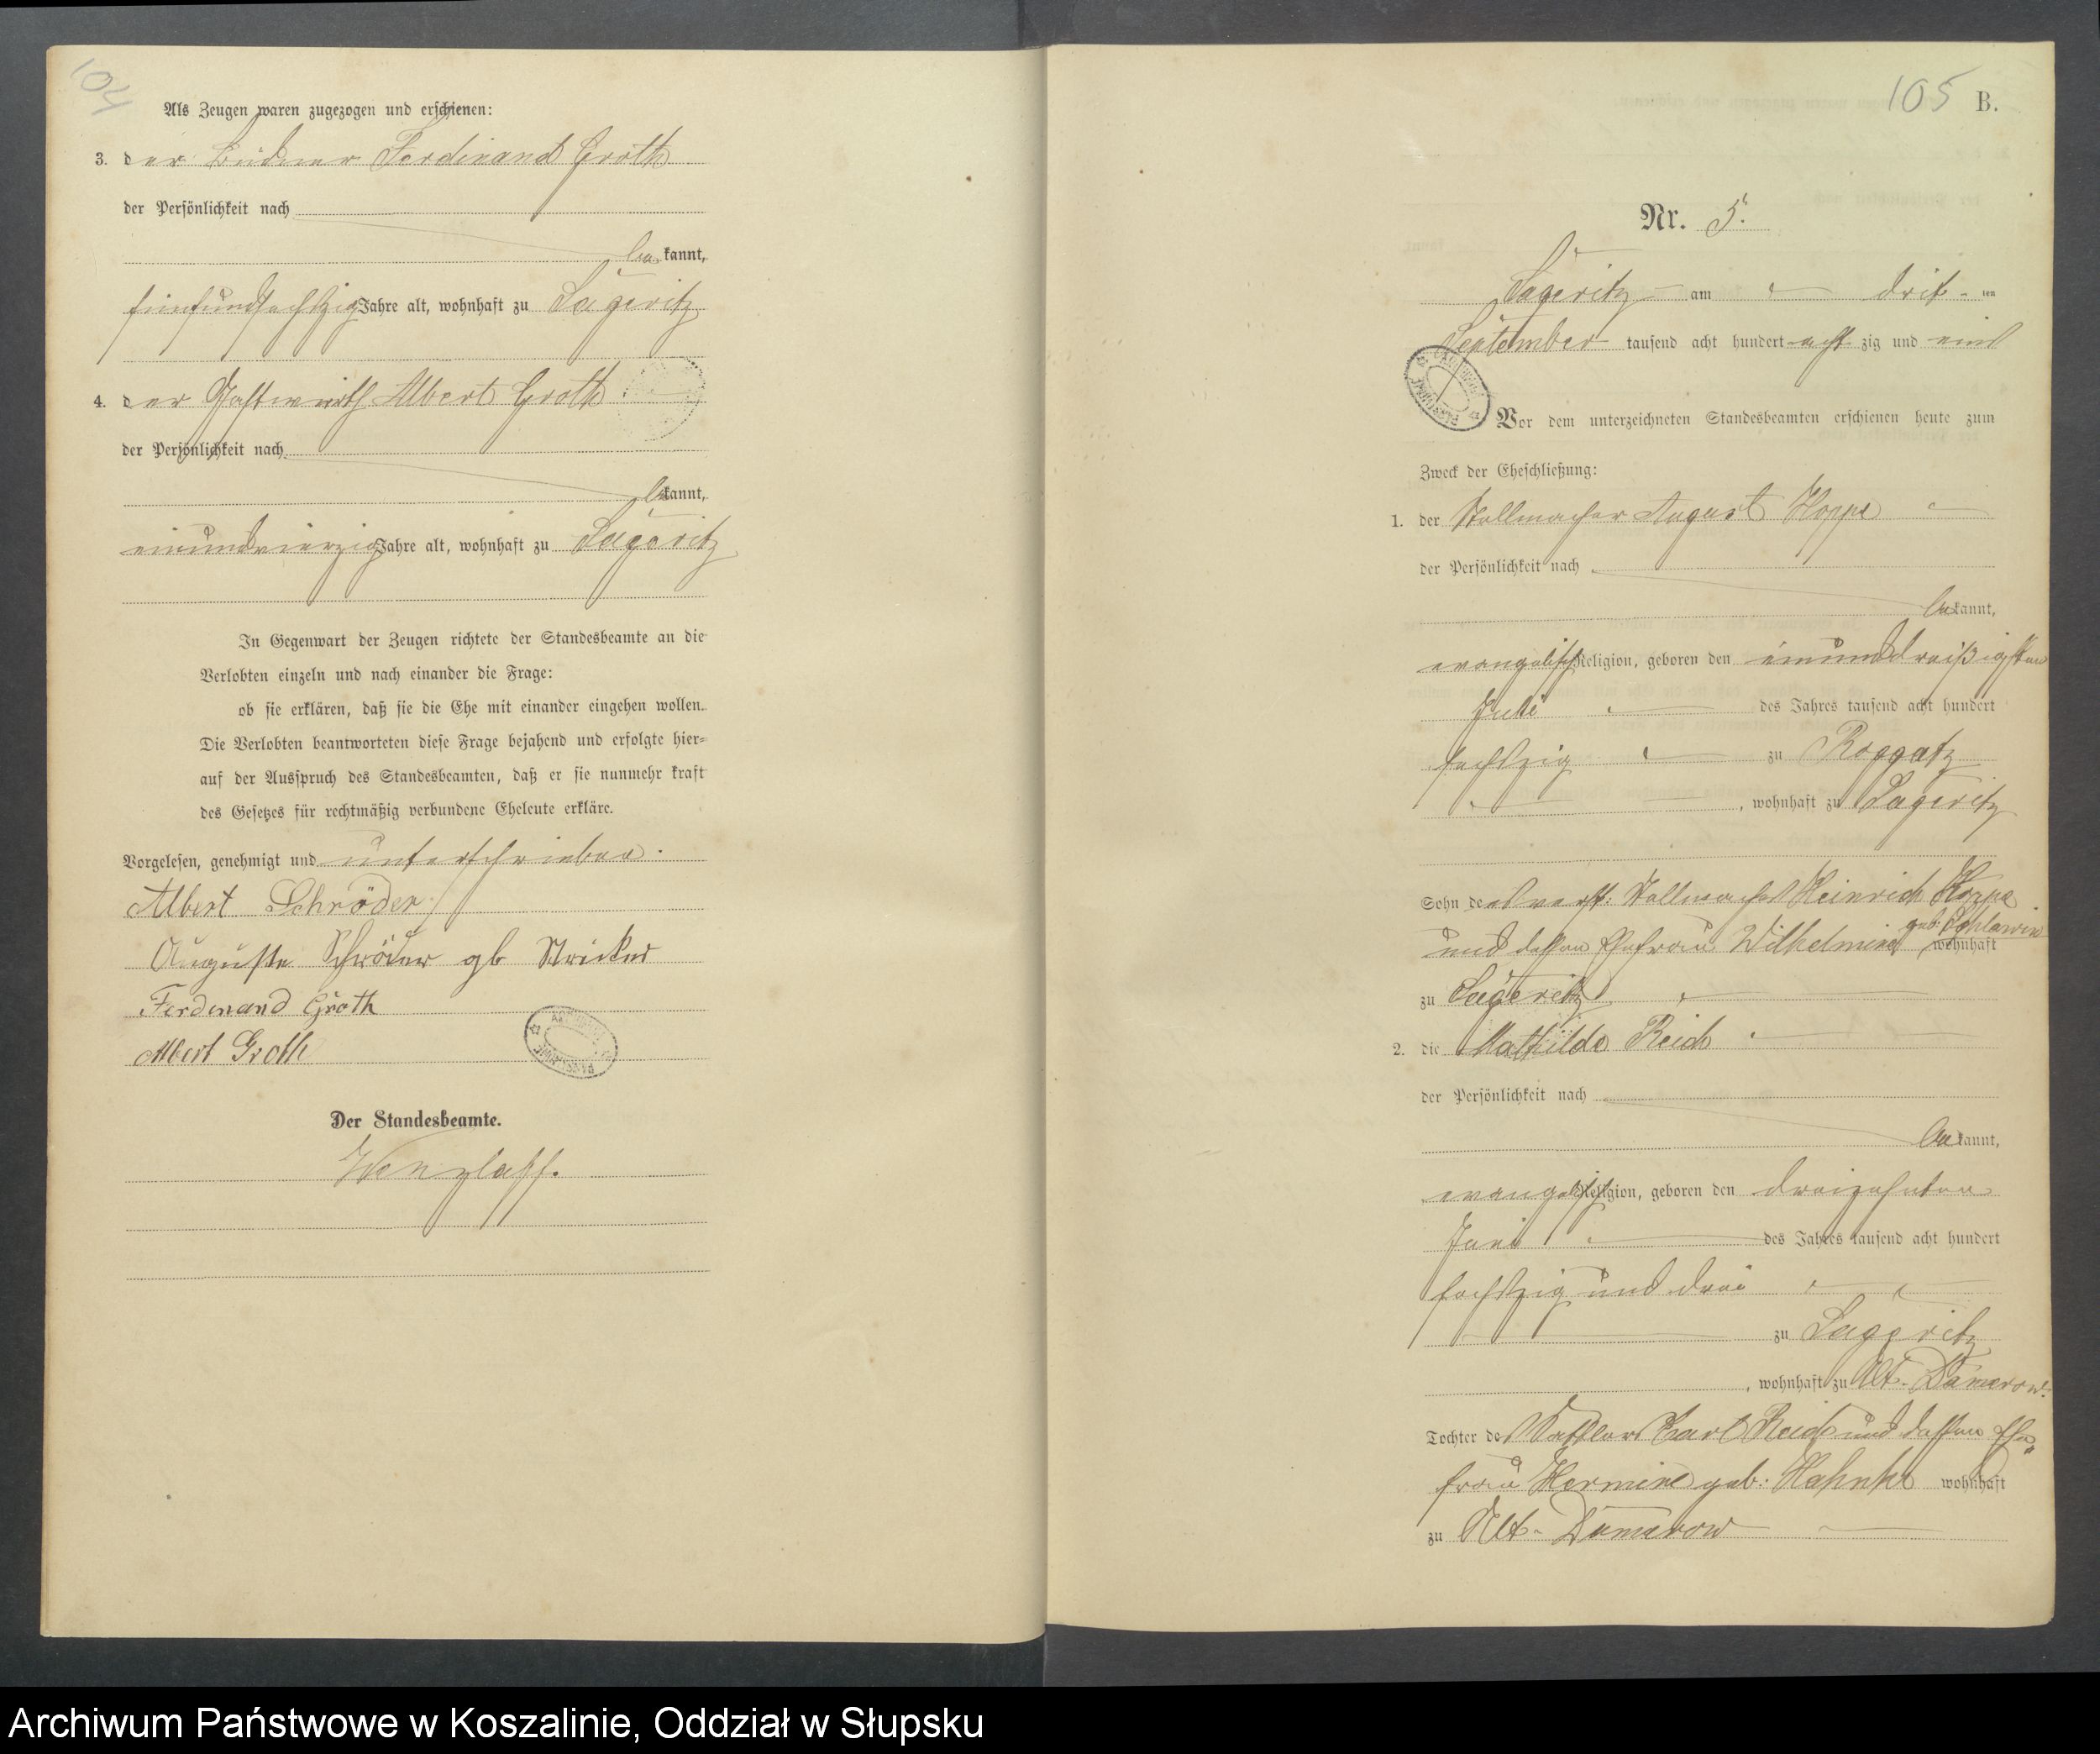 104
Als Zeugen waren zugezogen und erschienen:
3. der Büdner Ferdinand Groth
der Persönlichkeit nach
be kannt,
fünfundsechszig Jahre alt, wohnhaft zu Lageritz
4. der Gastwirth Albert Groth
der Persönlichkeit nach
be kannt,
einundvierzig Jahre alt, wohnhaft zu Lageritz
In Gegenwart der Zeugen richtete der Standesbeamte an die
Verlobten einzeln und nach einander die Frage:
ob sie erklären, daß sie die Ehe mit einander eingehen wollen.
Die Verlobten beantworteten diese Frage bejahend und erfolgte hier=
auf der Ausspruch des Standesbeamten, daß er sie nunmehr kraft
des Gesetzes für rechtmäßig verbundene Eheleute erkläre.
Vorgelesen, genehmigt und unterschrieben.
Albert Schröder
Auguste Schröder gb Stricker
Ferdinand Groth
Albert Groth
Der Standesbeamte.
Wenzlaff.
105 B.
Nr. 5.
Lageritz am drit- ten
September tausend acht hundert acht zig und eins
Vor dem unterzeichneten Standesbeamten erschienen heute zum
Zweck der Eheschließung:
1. der Stellmacher August Hoppe
der Persönlichkeit nach
be kannt,
evangelisch Religion, geboren den einunddreißigsten
Juli des Jahres tausend acht hundert
sechszig zu Roggatz
, wohnhaft zu Lageritz
Sohn des verst: Stellmacher Heinrich Hoppe
und dessen Ehefrau Wilhelmine geb: wohnhaft
zu Lageritz
2. die Mathilde Reich
der Persönlichkeit nach
be kannt,
evangelisch Religion, geboren den dreizehnten
Juni des Jahres tausend acht hundert
sechszig und drei
zu Lageritz
, wohnhaft zu Alt-Damerow.
Tochter des Sattlers Carl Reich und dessen Ehe=
frau Hermine geb: Hahnke wohnhaft
zu Alt-Damerow
Archiwum Państwowe w Koszalinie, Oddział w Słupsku